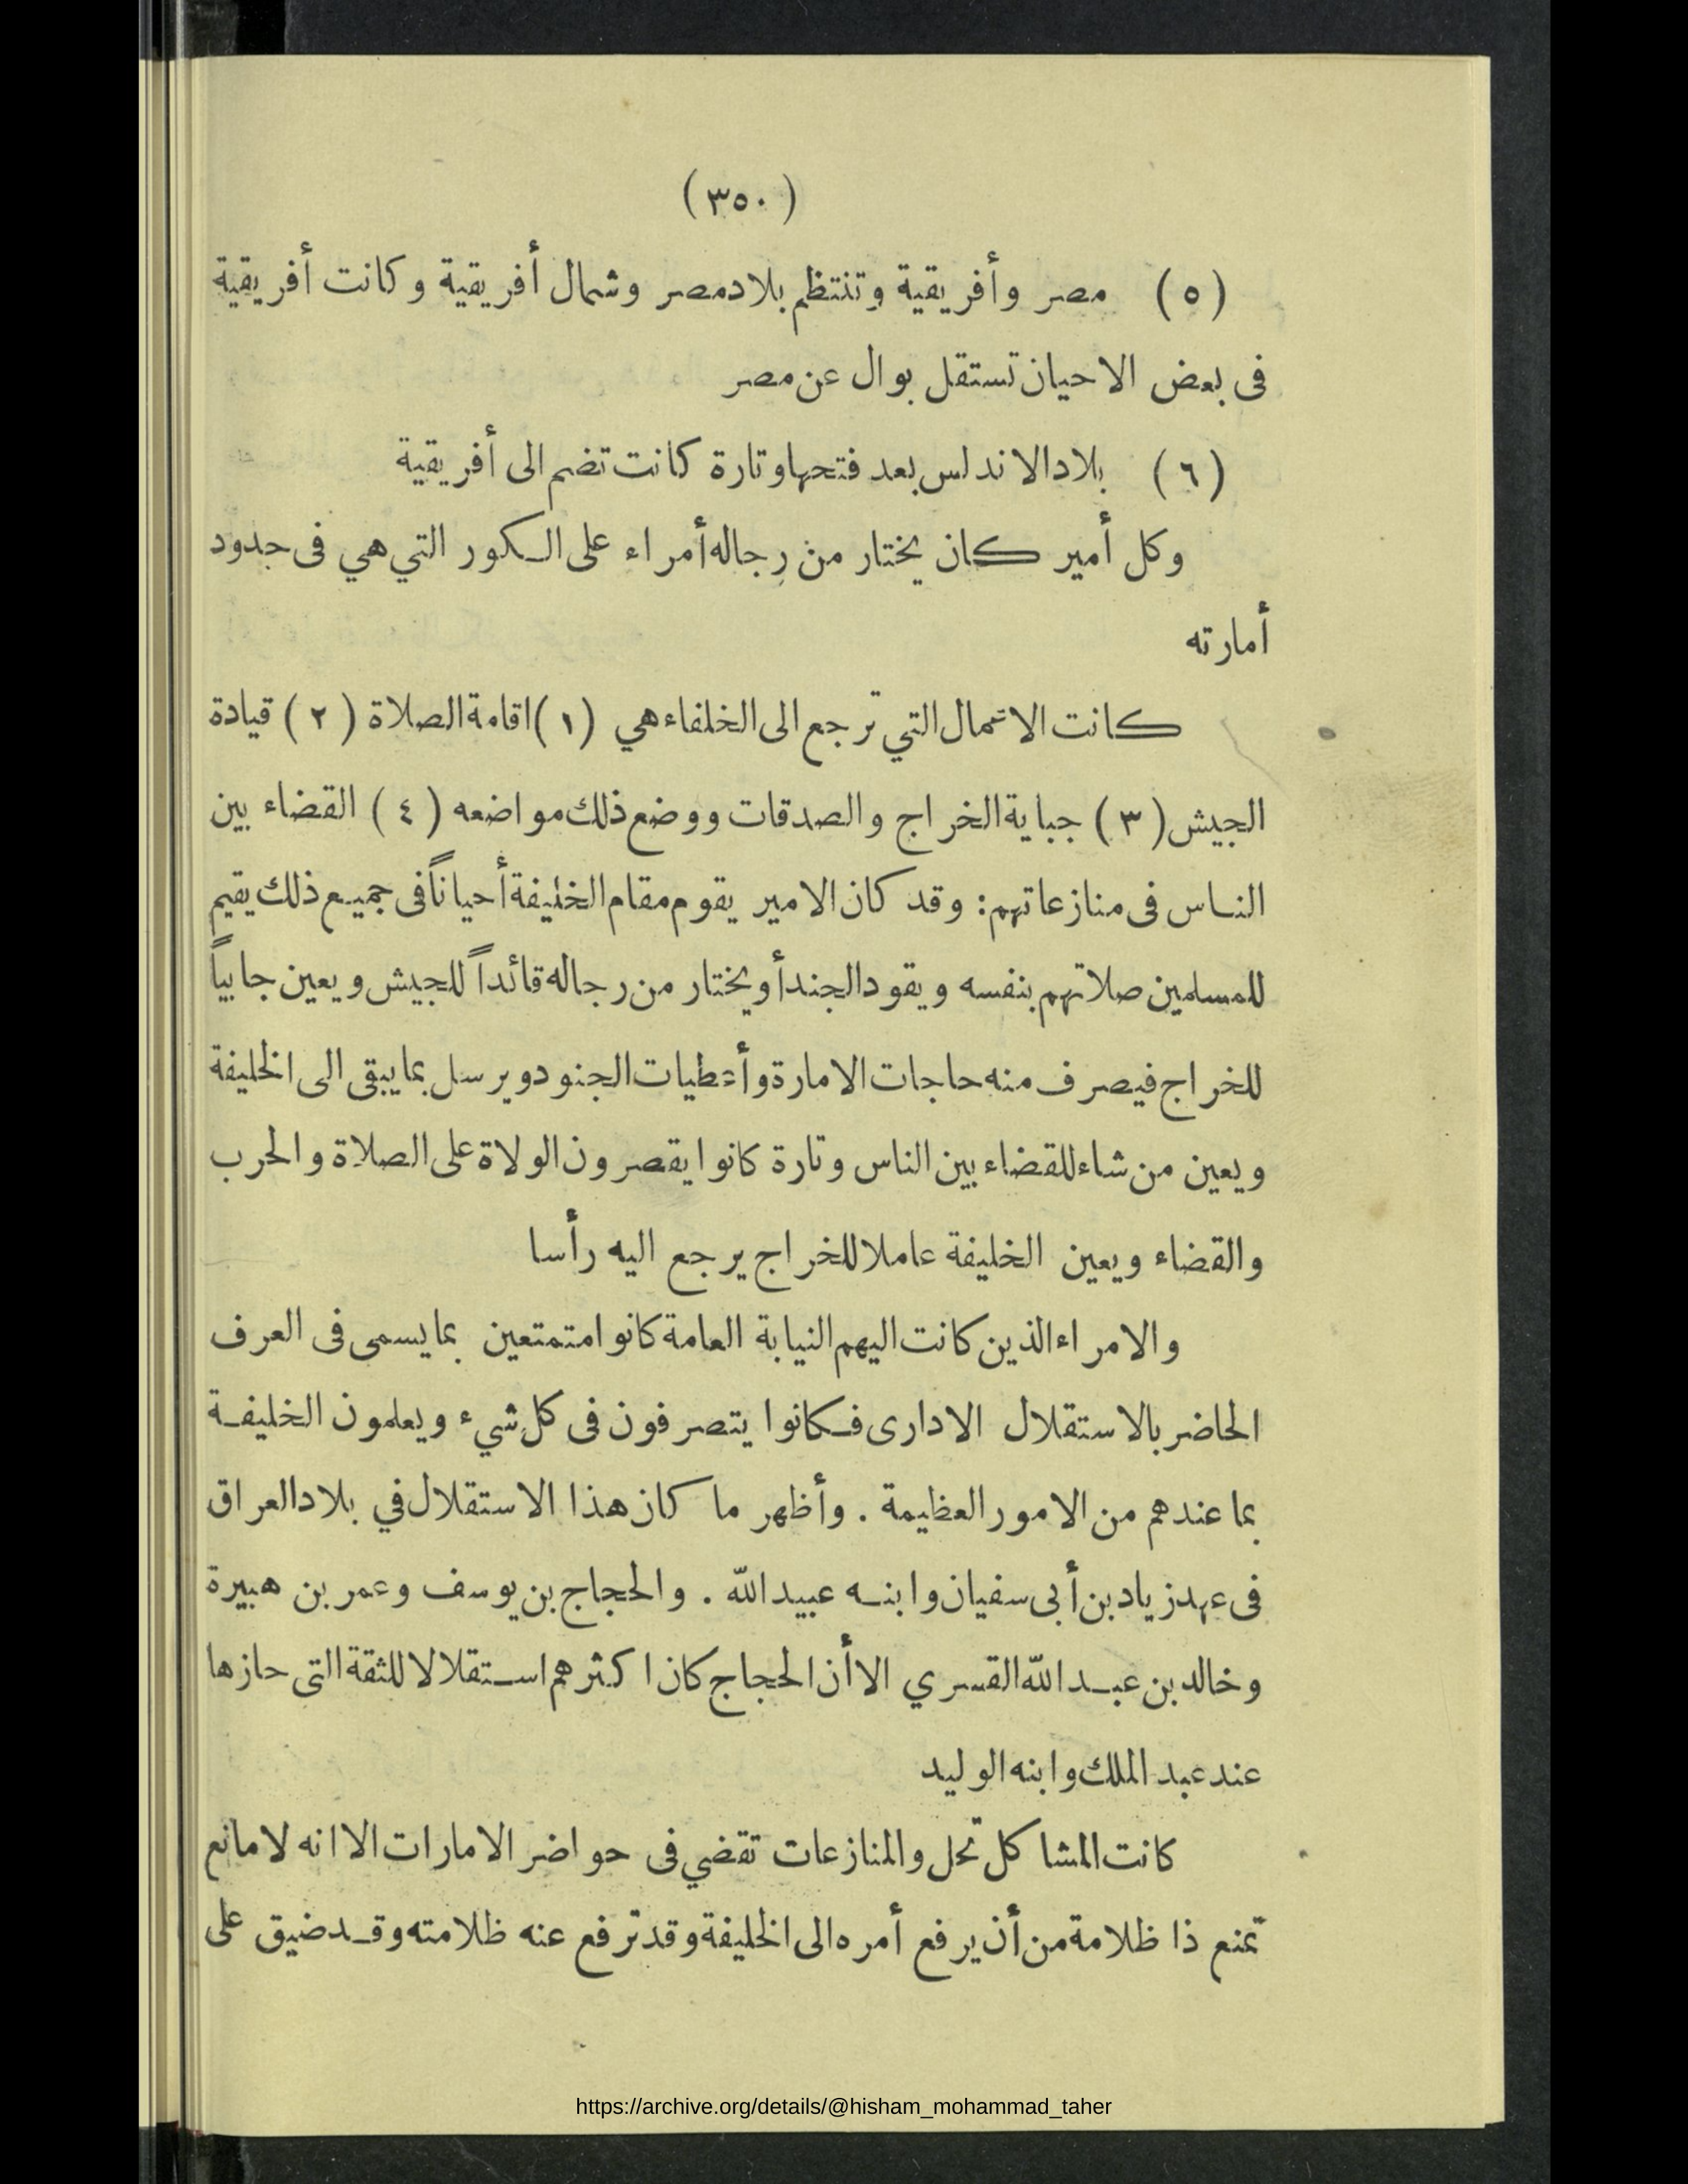 (٣٥٠)
(٥) مصر وأفريقية وتنتظم بلاد مصر وشمال أفريقية وكانت أفريقية
فى بعض الاحيان تستقل بوال عن مصر
(٦) بلاد الاندلس بعد فتحها وتارة كانت تضم الى أفريقية
وكل أمير كان يختار من رجاله أمراء على الكور التي هي فى حدود
أمارته
كانت الاعمال التي ترجع الى الخلفاء هي (١) اقامة الصلاة (٢) قيادة
الجيش (٣) جباية الخراج والصدقات ووضع ذلك مواضعه (٤) القضاء بين
الناس فى منازعاتهم: وقد كان الامير يقوم مقام الخليفة أحياناً فى جميع ذلك يقيم
للمسلمين صلاتهم بنفسه ويقود الجند أو يختار من رجاله قائداً للجيش ويعين جابياً
للخراج فيصرف منه حاجات الامارة وأعطيات الجنود ويرسل بما يبقى الى الخليفة
ويعين من شاء للقضاء بين الناس وتارة كانوا يقصرون الولاة على الصلاة والحرب
والقضاء ويعين الخليفة عاملا للخراج يرجع اليه رأسا
والامراء الذين كانت اليهم النيابة العامة كانوا متمتعين بما يسمى فى العرف
الحاضر بالاستقلال الادارى فكانوا يتصرفون فى كل شيء ويعلمون الخليفة
بما عندهم من الامور العظيمة . وأظهر ما كان هذا الاستقلال في بلاد العراق
فى عهد زياد بن أبى سفيان وابنه عبيد الله . والحجاج بن يوسف وعمر بن هبيرة
وخالد بن عبد الله القسري الا أن الحجاج كان اكثرهم استقلالا للثقة التى حازها
عند عبد الملك وابنه الوليد
كانت المشاكل تحل والمنازعات تقضي فى حواضر الامارات الا انه لا مانع
تمنع ذا ظلامة من أن يرفع أمره الى الخليفة وقد ترفع عنه ظلامته وقد ضيق على
https://archive.org/details/@hisham_mohammad_taher